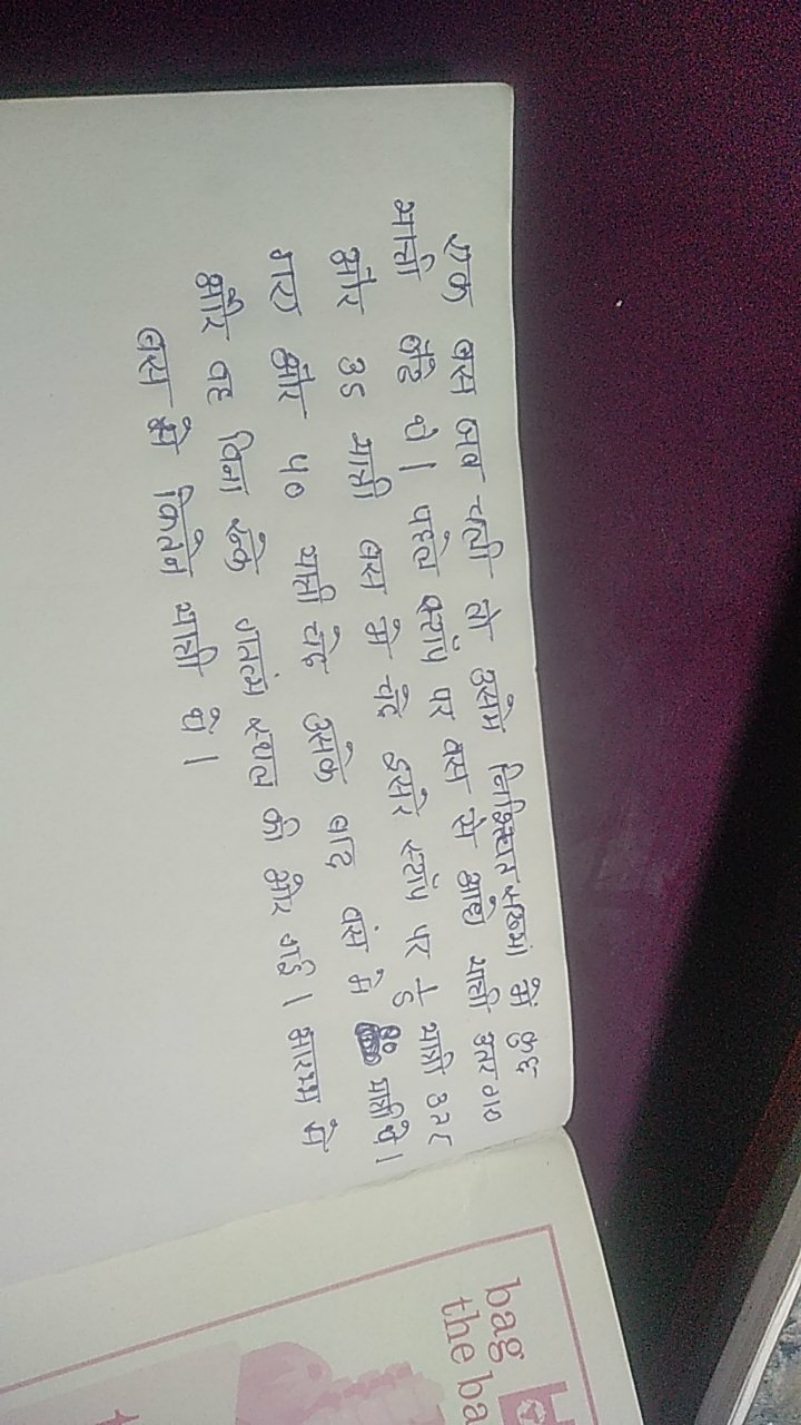 एक बस जब चली तो उसमे निश्चित संख्या में कुछ
यात्री बैठे थे। पहले स्टाॅप पर बस से आधे यात्री उतर गए
और 35 यात्री बस मे चढे दुसरे स्टाॅप पर 1/5 यात्री उतर
गए और 40 यात्री चढे उसके बाद बस मे 80 यात्री थे।
और वह बिना रूके गंतव्य स्थल की और गई। आरम्भ मे
बस मे कितने यात्री थे।
bag
the ba